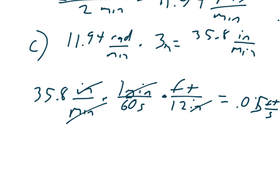 2 min = 11.94 min
c) 11.94 rad/min · 3in = 35.8 in/min
35.8 in/min · 1min/60s · ft/12in = .05 ft/s